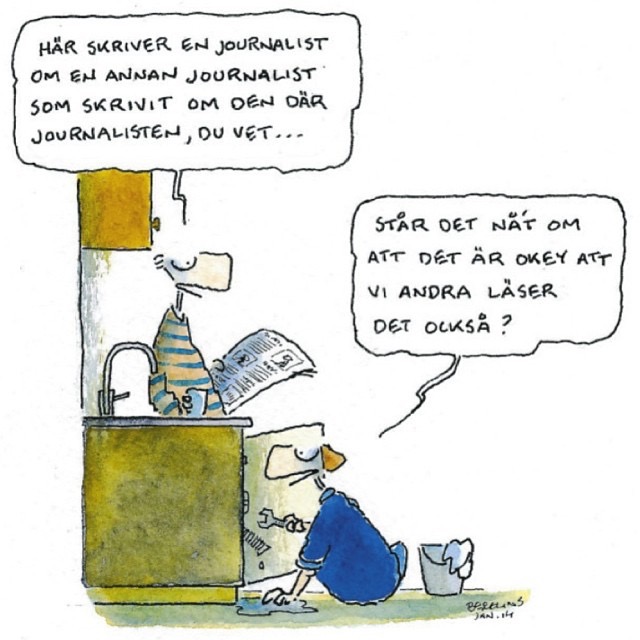 HÄR SKRIVER EN JOURNALIST
OM EN ANNAN JOURNALIST
SOM SKRIVIT OM DEN DÄR
JOURNALISTEN, DU VET...
STÅR DET NÅ'T OM
ATT DET ÄR OKEY ATT
VI ANDRA LÄSER
DET OCKSÅ?
BERGLINS
JAN. 14